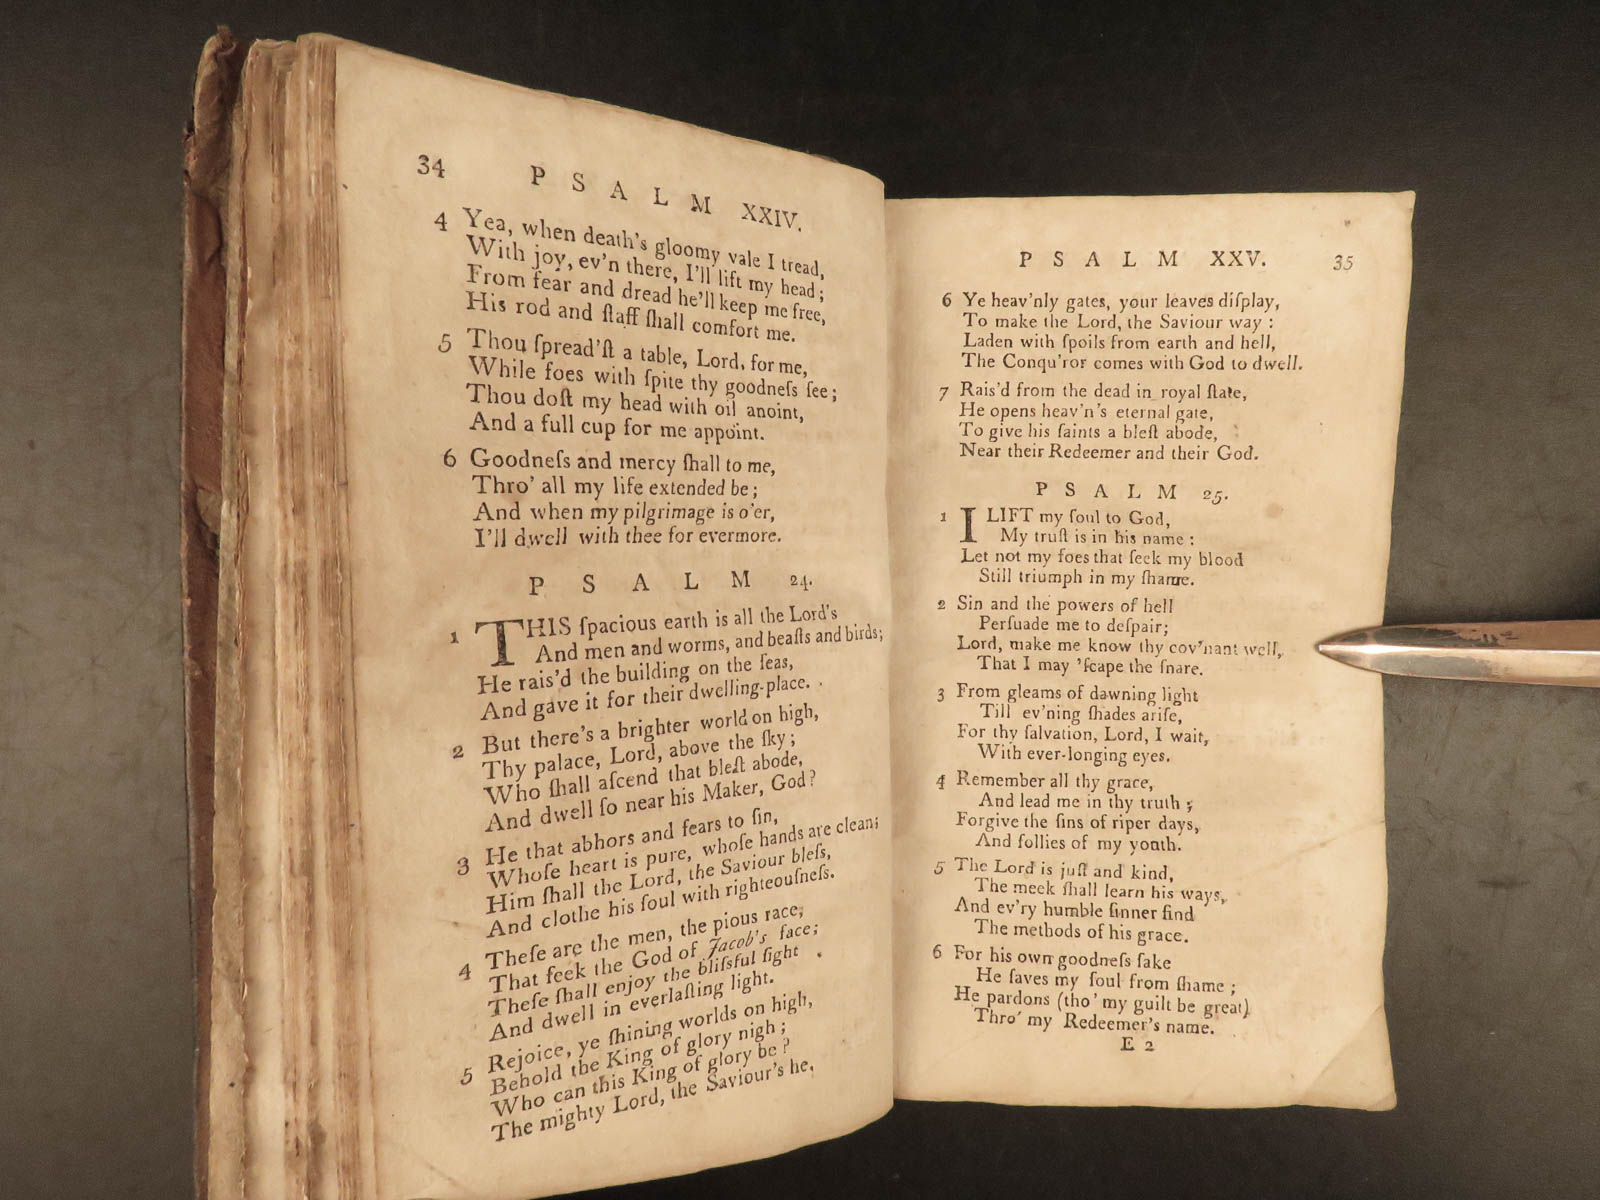 34 PSALM XXIV.
4 Yea, when death's gloomy vale I tread,
With joy, ev'n there, I'll lift my head;
From fear and dread he'll keep me free,
His rod and ſtaff ſhall comfort me.
5 Thou ſpread'ſt a table, Lord, for me,
While foes with ſpite thy goodneſs ſee;
Thou doſt my head with oil anoint,
And a full cup for me appoint.
6 Goodneſs and mercy ſhall to me,
Thro' all my life extended be;
And when my pilgrimage is o'er,
I'll dwell with thee for evermore.
PSALM 24.
1 THIS ſpacious earth is all the Lord's
And men and worms, and beaſts and birds;
He rais'd the building on the ſeas,
And gave it for their dwelling-place.
2 But there's a brighter world on high,
Thy palace, Lord, above the ſky;
Who ſhall aſcend that bleſt abode,
And dwell ſo near his Maker, God?
3 He that abhors and fears to ſin,
Whoſe heart is pure, whoſe hands are clean;
Him ſhall the Lord, the Saviour bleſs,
And clothe his ſoul with righteouſneſs.
4 Theſe are the men, the pious race,
That ſeek the God of Jacob's face;
Theſe ſhall enjoy the bliſsful ſight
And dwell in everlaſting light.
5 Rejoice, ye ſhining worlds on high,
Behold the King of glory nigh;
Who can this King of glory be?
The mighty Lord, the Saviour's he.
PSALM XXV. 35
6 Ye heav'nly gates, your leaves diſplay,
To make the Lord, the Saviour way:
Laden with ſpoils from earth and hell,
The Conqu'ror comes with God to dwell.
7 Rais'd from the dead in royal ſtate,
He opens heav'n's eternal gate,
To give his ſaints a bleſt abode,
Near their Redeemer and their God.
PSALM 25.
1 I LIFT my ſoul to God,
My truſt is in his name:
Let not my foes that ſeek my blood
Still triumph in my ſhame.
2 Sin and the powers of hell
Perſuade me to deſpair;
Lord, make me know thy cov'nant well,
That I may 'ſcape the ſnare.
3 From gleams of dawning light
Till ev'ning ſhades ariſe,
For thy ſalvation, Lord, I wait,
With ever-longing eyes.
4 Remember all thy grace,
And lead me in thy truth;
Forgive the ſins of riper days,
And follies of my youth.
5 The Lord is juſt and kind,
The meek ſhall learn his ways,
And ev'ry humble ſinner find
The methods of his grace.
6 For his own goodneſs ſake
He ſaves my ſoul from ſhame;
He pardons (tho' my guilt be great)
Thro' my Redeemer's name.
E 2